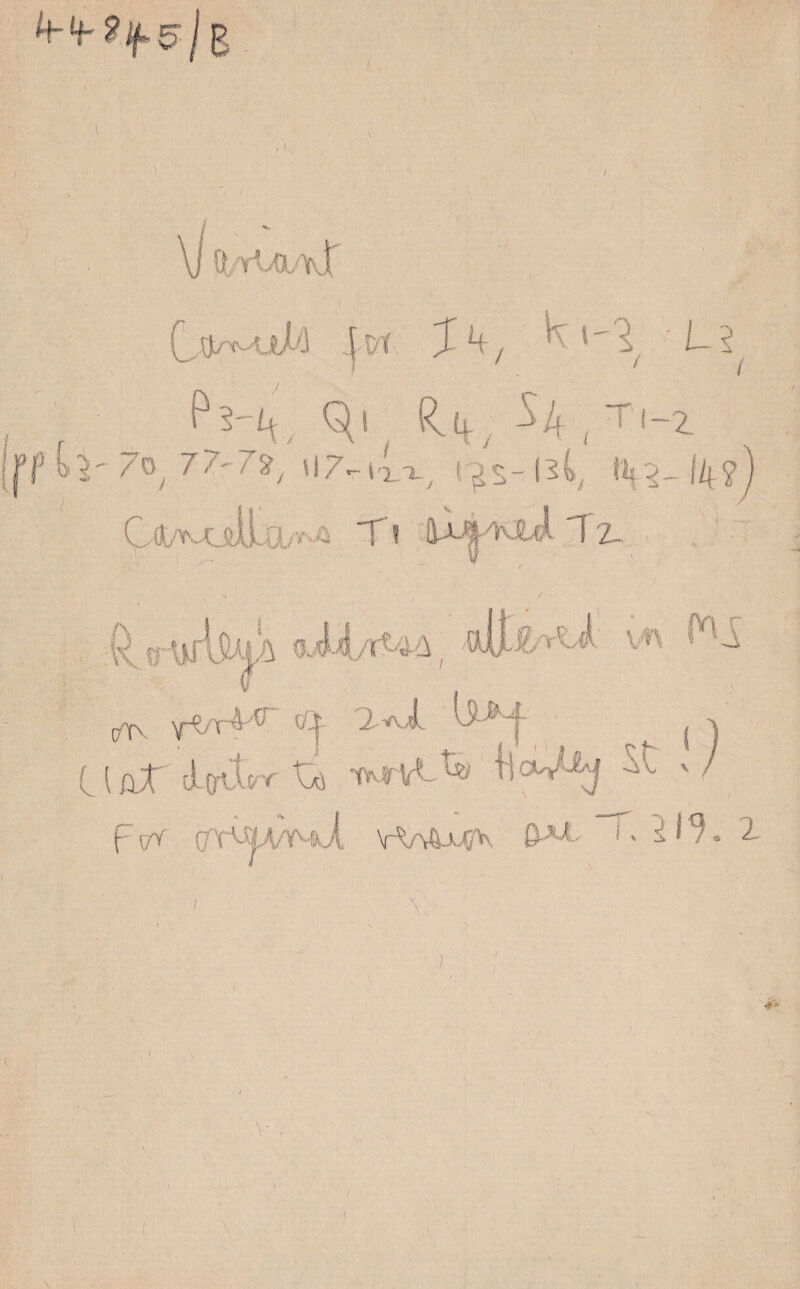 44845/B
Variant
Cancels for I4, K1-3, L3,
P3-4, Q1, R4, S4, T1-2
(pp 63-70, 77-78, 117-122, 135-136, 143-148)
Cancellans T1 signed T2
Rowley's address, altered in MS
on verso of 2nd leaf
(1st doctor to move to Harley St!)
For original version see T.319.2